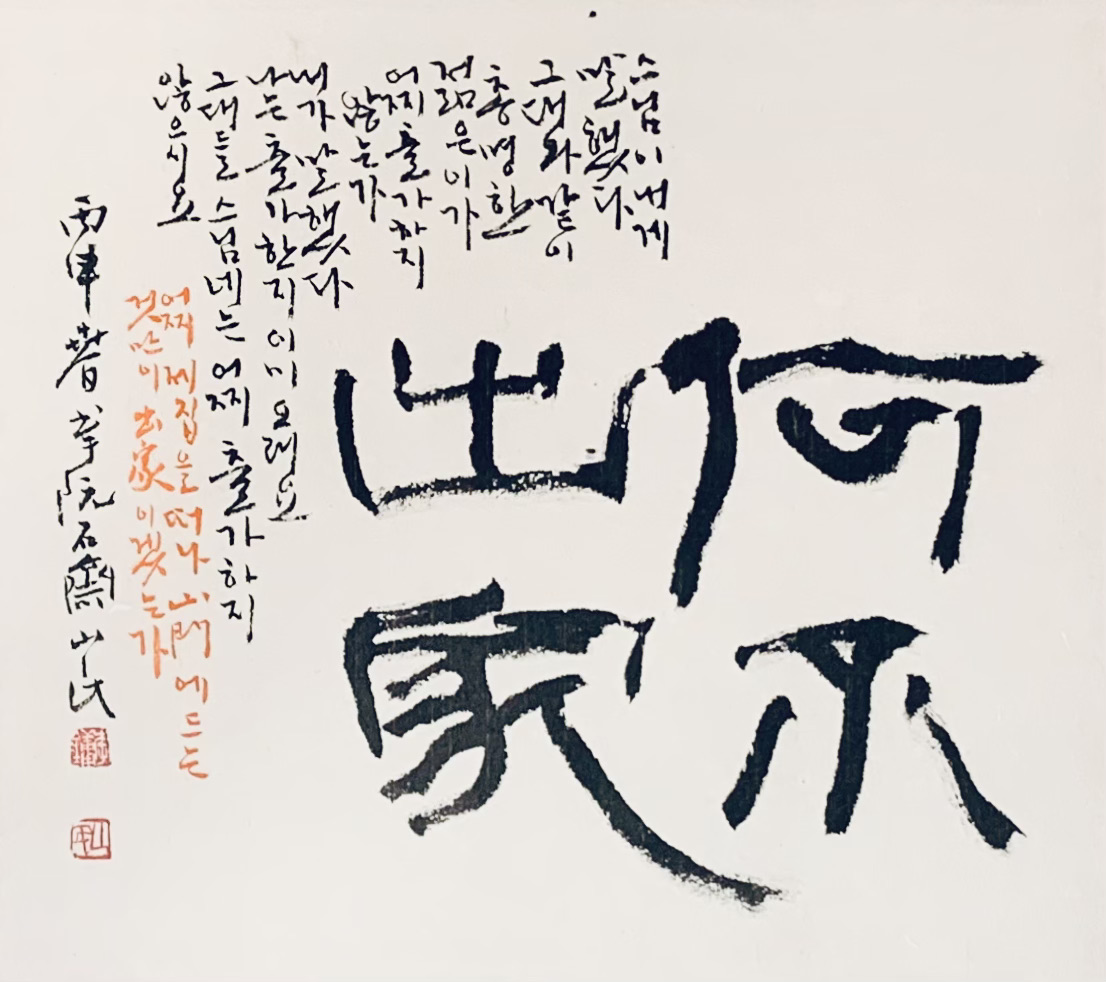 何不
出家
스님이 내게
말했다
그대와 같이
총명한
젊은이가
어찌 출가하지
않는가
내가 말했다
나는 출가한지 이미 오래요
그대들 스님네는 어찌 출가하지
않으시요
어찌 제 집을 떠나 山門에 드는
것만이 出家이겠는가
丙申春 石齋 山民